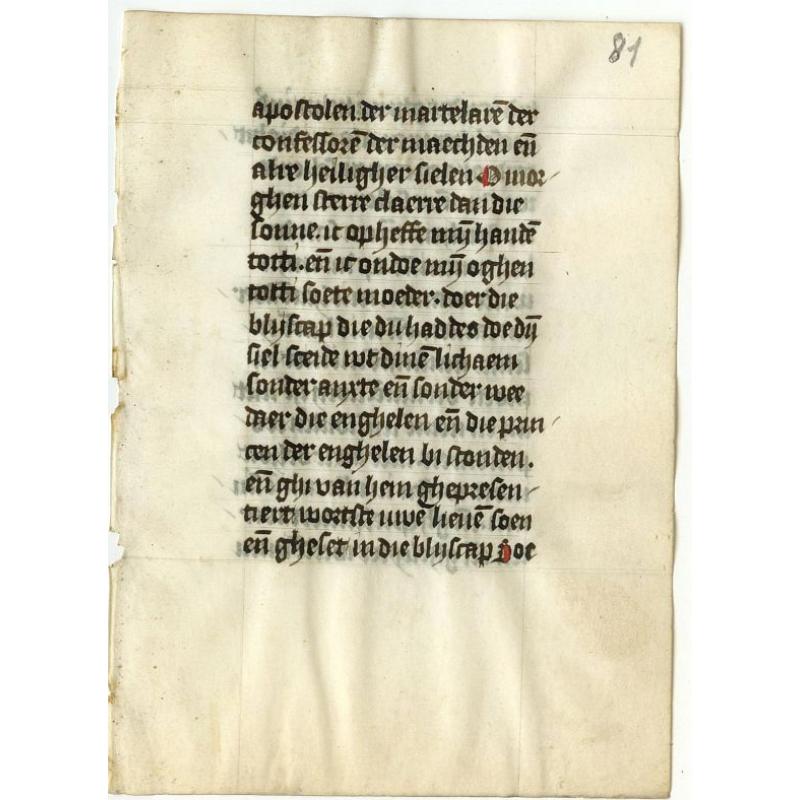 81
apostolen.der martelarē der
confessorē der maechden eñ
alre heiligher sielen O mor/
ghen sterre claerre dan die
sonne.ic opheffe mijn handē
totti.eñ ic ondoe mijn oghen
totti soete moeder.doer die
blijscap die du haddes doe dijn
siel sceide wt dinē lichaem
sonder anxte eñ sonder wee
daer die enghelen eñ die prin/
cen der enghelen bi stonden.
eñ ghi van hem ghepresen/
tiert wortste uwē lieuē soen
eñ gheset in die blijscap Joe